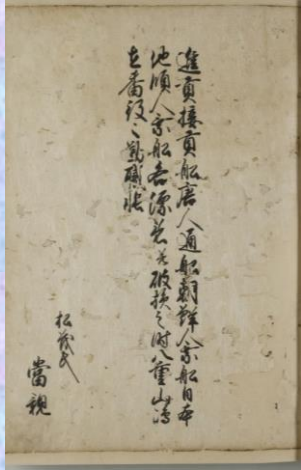 進貢接貢船唐人通船朝鮮人乗船日本
他領人乗船各漂着並破損之時八重山嶋
在番役々勤職帳
松茂氏
當親